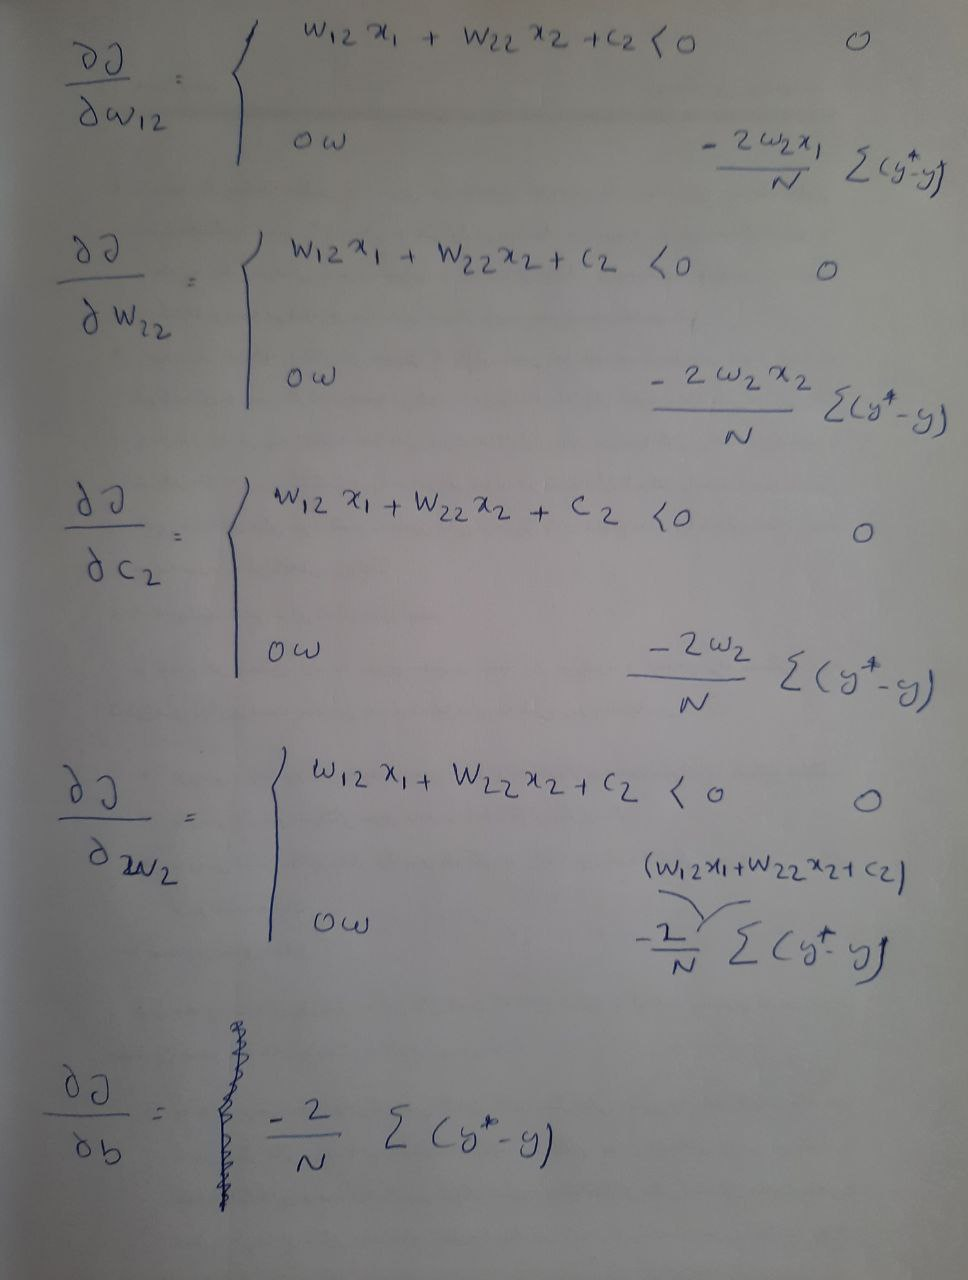 ∂J/∂w₁₂ = { w₁₂ x₁ + w₂₂ x₂ + c₂ < 0    0
ow    -2w₂x₁/N Σ(y*-y)
∂J/∂w₂₂ = { w₁₂ x₁ + w₂₂ x₂ + c₂ < 0    0
ow    -2w₂x₂/N Σ(y*-y)
∂J/∂c₂ = { w₁₂ x₁ + w₂₂ x₂ + c₂ < 0    0
ow    -2w₂/N Σ(y*-y)
∂J/∂w₂ = { w₁₂ x₁ + w₂₂ x₂ + c₂ < 0    0
(w₁₂x₁+w₂₂x₂+c₂)
ow    -2/N Σ(y*-y)
∂J/∂b = -2/N Σ(y*-y)